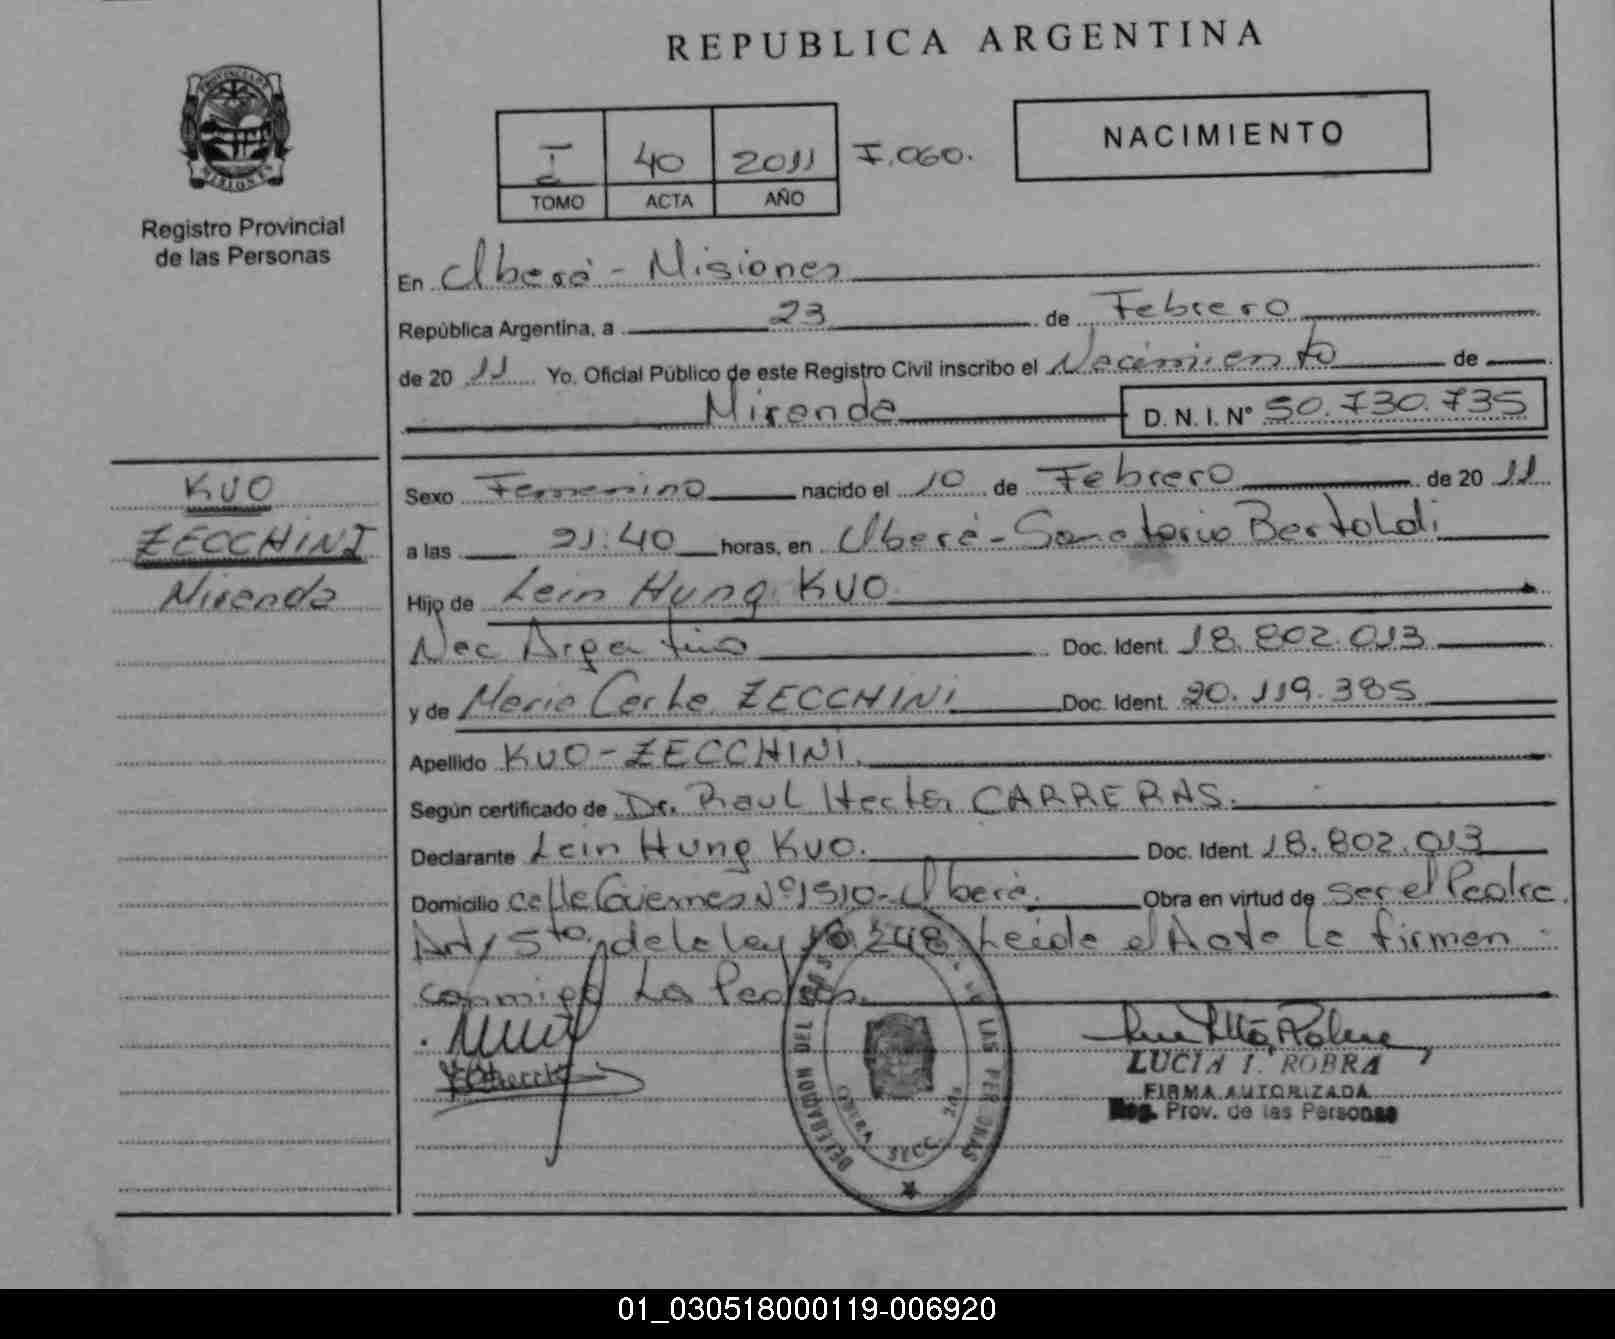 REPUBLICA ARGENTINA
PROVINCIA DE
MISIONES
Registro Provincial
de las Personas
I
40
2011
F.060.
TOMO
ACTA
AÑO
NACIMIENTO
En Oberá - Misiones
República Argentina, a 23 de Febrero
de 20 11 Yo. Oficial Público de este Registro Civil inscribo el Nacimiento de
Miranda
D. N. I. N° 50.730.735
KUO
ZECCHINI
Miranda
Sexo Femenino nacido el 10 de Febrero de 20 11
a las 21:40 horas, en Oberá - Sanatorio Bertoldi
Hijo de Lein Hung KUO
Nac Argentino Doc. Ident. 18.802.013
y de Maria Carla ZECCHINI Doc. Ident. 20.119.385
Apellido KUO - ZECCHINI.
Según certificado de Dr. Raul Hector CARRERAS.
Declarante Lein Hung KUO. Doc. Ident. 18.802.013
Domicilio calle Güemes Nº 1510 - Oberá. Obra en virtud de ser el Padre
Art, 5to, de la ley 10.248 Leida el Acta La firman
conmigo Los Padres.
LUCIA I. ROBRA
FIRMA AUTORIZADA
Reg. Prov. de las Personas
DELEGACION DEL
LAS PERSONAS
SECC.
01_030518000119-006920